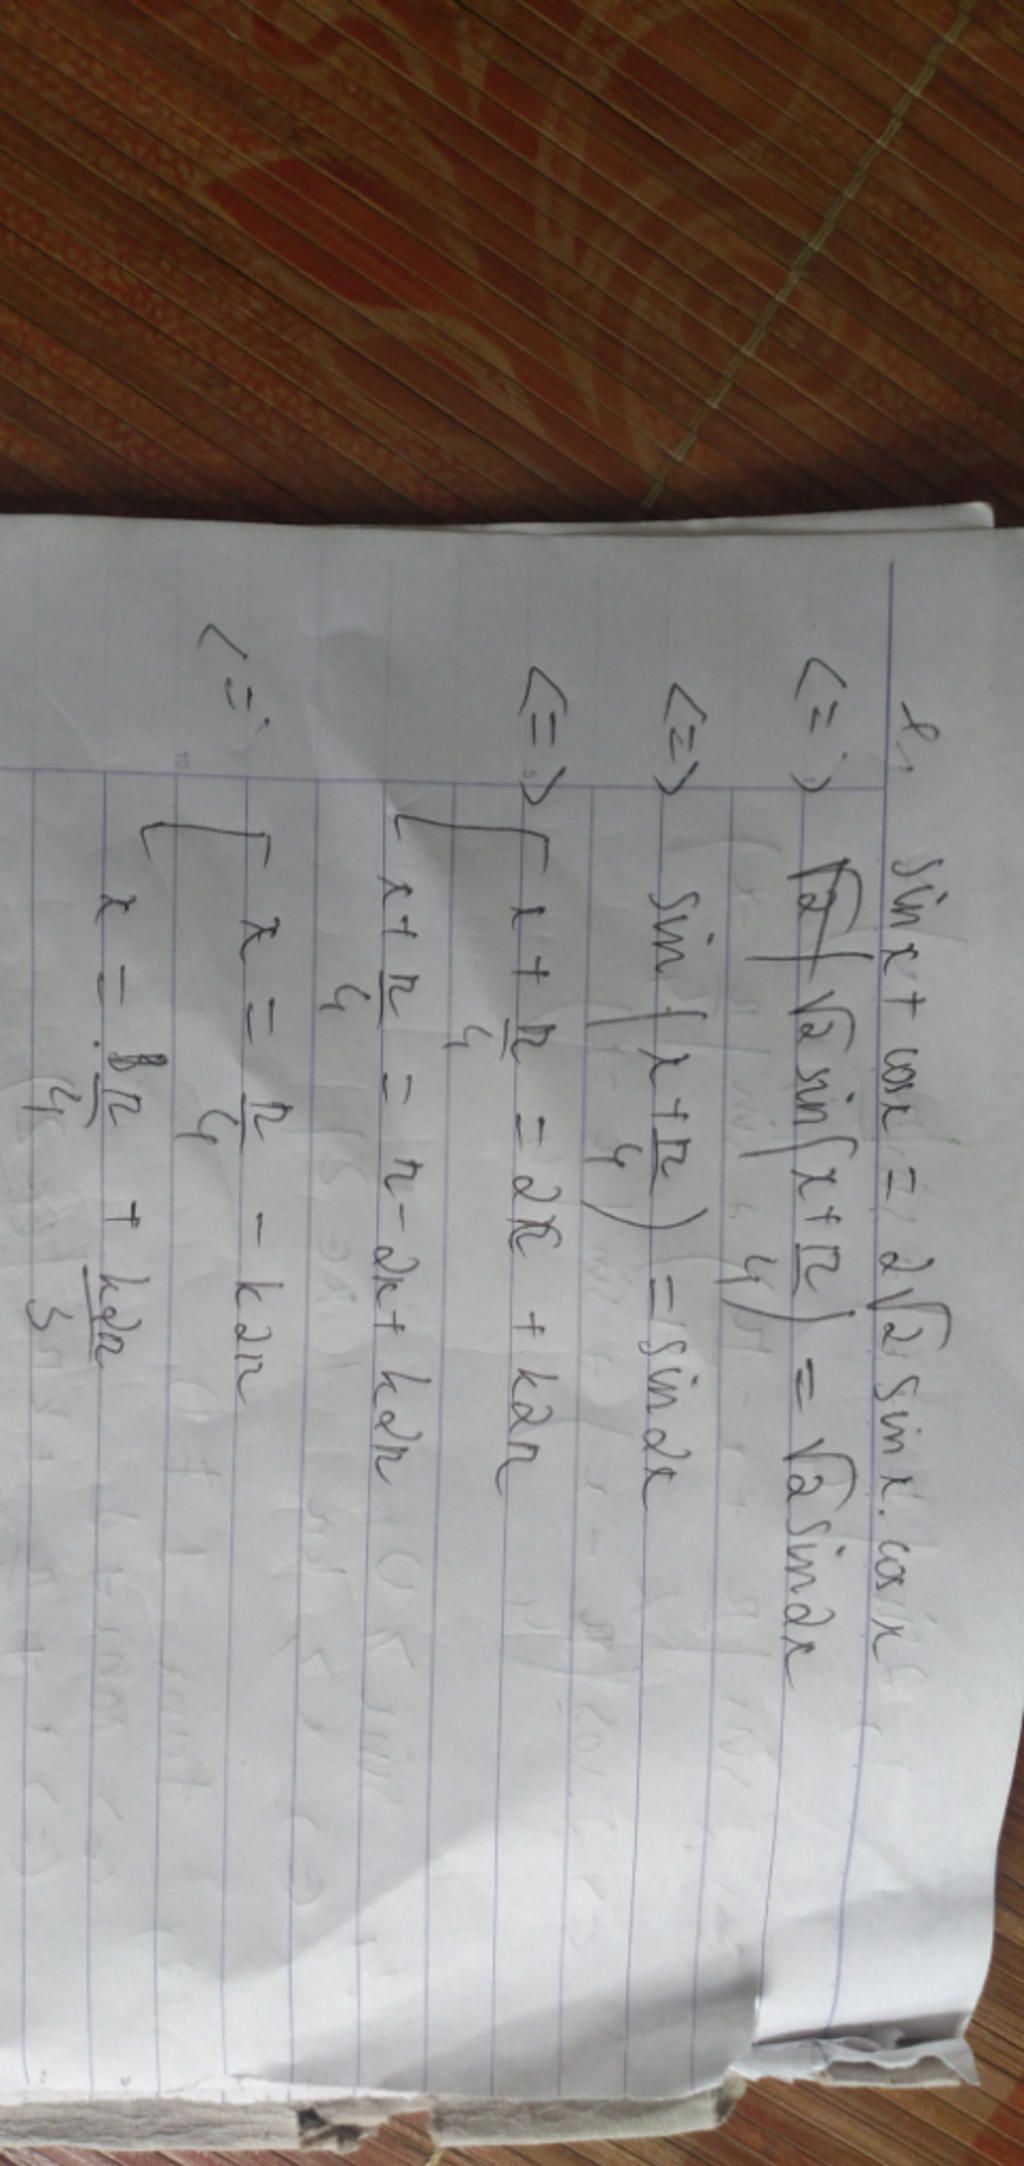 l, sin x + cos x = 2√2 sin x . cos x
<=> √2 sin(x + π/4) = √2 sin2x
<=> sin(x + π/4) = sin2x
<=> [ x + π/4 = 2x + k2π
x + π/4 = π - 2x + k2π
<=> [ x = π/4 - k2π
x = π/4 + k2π/3